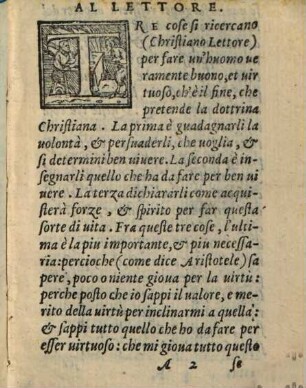 AL LETTORE.
TRE cose si ricercano
(Christiano Lettore)
per fare un'huomo ue
ramente buono, et uir
tuoso, ch'è il fine, che
pretende la dottrina
Christiana. La prima è guadagnarli la
uolontà, & persuaderli, che uoglia, &
si determini ben uiuere. La seconda è in-
segnarli quello che ha da fare per ben ui
uere. La terza dichiararli come acqui-
sterà forze, & spirito per far questa
sorte di uita. Fra queste tre cose, l'ulti-
ma è la piu importante, & piu necessa-
ria: percioche (come dice Aristotele) sa
pere, poco o niente gioua per la uirtù:
perche posto che io sappi il ualore, e me-
rito della uirtù per inclinarmi a quella:
& sappi tutto quello che ho da fare per
esser uirtuoso: che mi gioua tutto questo
A 2 se